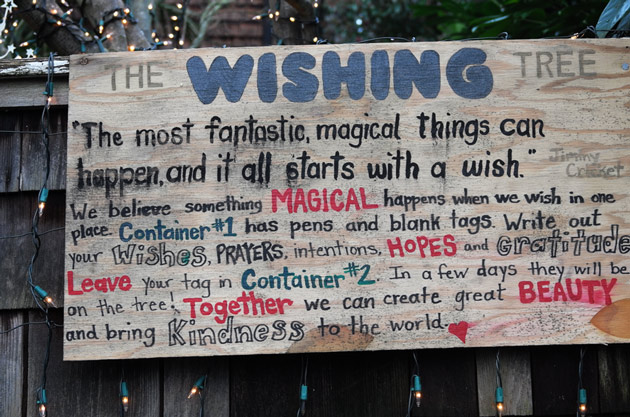 THE WISHING TREE
"The most fantastic, magical things can
happen, and it all starts with a wish."
Jiminy
Cricket
We believe something MAGICAL happens when we wish in one
place. Container #1 has pens and blank tags. Write out
your Wishes, PRAYERS, intentions, HOPES and Gratitude
Leave your tag in Container #2. In a few days they will be
on the tree! Together we can create great BEAUTY
and bring Kindness to the world.